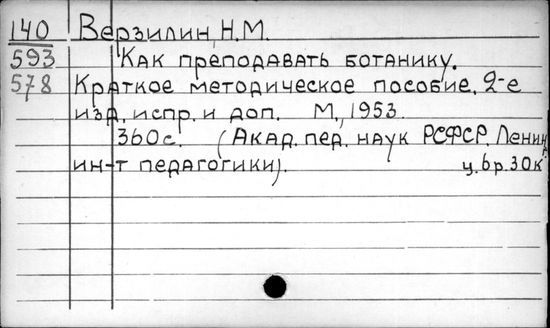 140 Верзилин, Н.М.
593 Как преподавать ботанику.
578 Краткое методическое пособие. 2-е
изд., испр. и доп. М., 1953.
360с. (Акад. пед. наук РСФСР. Ленин
ин-т педагогики).
ц. 6р. 30к